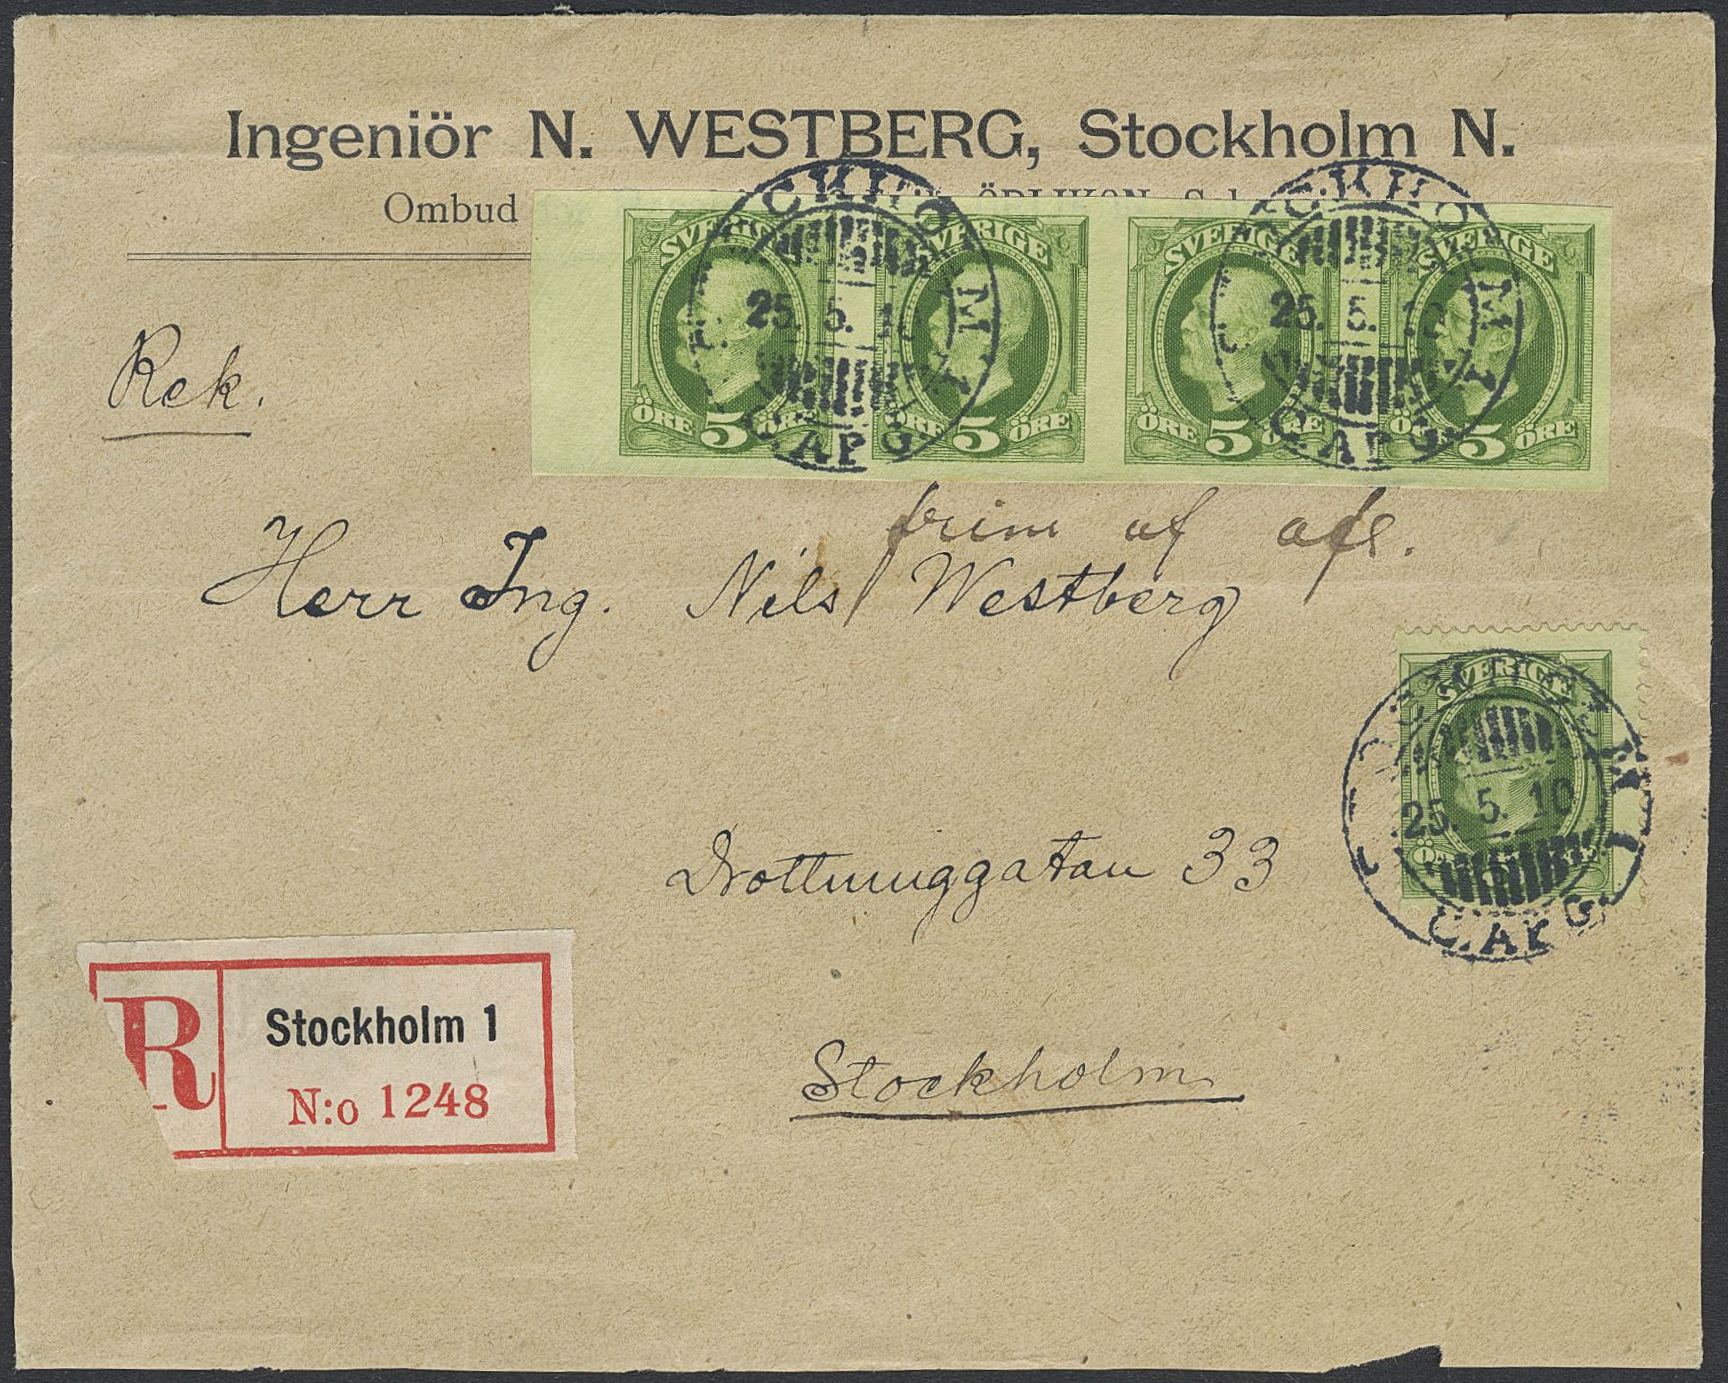 Ingeniör N. WESTBERG, Stockholm N.
Ombud ÖRLIKON
SVERIGE SVERIGE SVERIGE SVERIGE
STOCKHOLM 1 STOCKHOLM 1
25. 5. 10 25. 5. 10
C. AFG. C. AFG.
ÖRE 5 ÖRE ÖRE 5 ÖRE ÖRE 5 ÖRE ÖRE 5 ÖRE
Rek.
frim af afs.
Herr Ing. Nils Westberg
SVERIGE
STOCKHOLM 1
25. 5. 10
C. AFG.
Drottninggatan 33
R Stockholm 1
N:o 1248
Stockholm